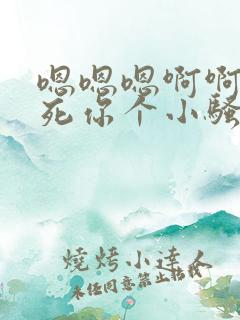 嗯嗯嗯啊啊
死你个小骚
燒烤小達人
未经同意禁止搭载